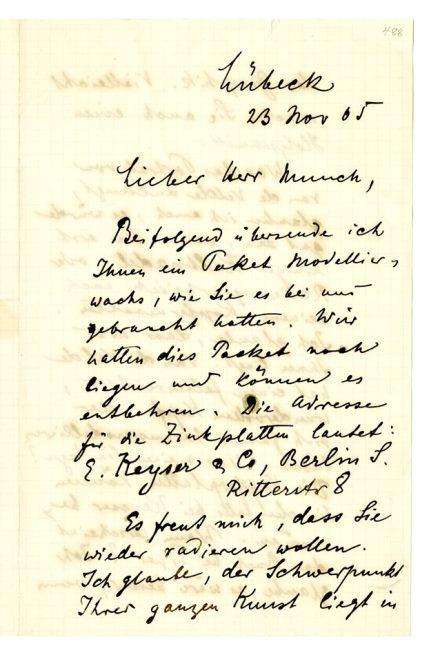 488
Lübeck
23 Nov 05
Lieber Herr Munch,
Beifolgend übersende ich
Ihnen ein Paket Modellier-
wachs, wie Sie es bei uns
gebraucht hatten. Wir
hatten dies Packet noch
liegen und können es
entbehren. Die Adresse
für die Zinkplatten lautet:
E. Keyser & Co, Berlin S.
Ritterstr 8
Es freut mich, dass Sie
wieder radieren wollen.
Ich glaube, der Schwerpunkt
Ihrer ganzen Kunst liegt in